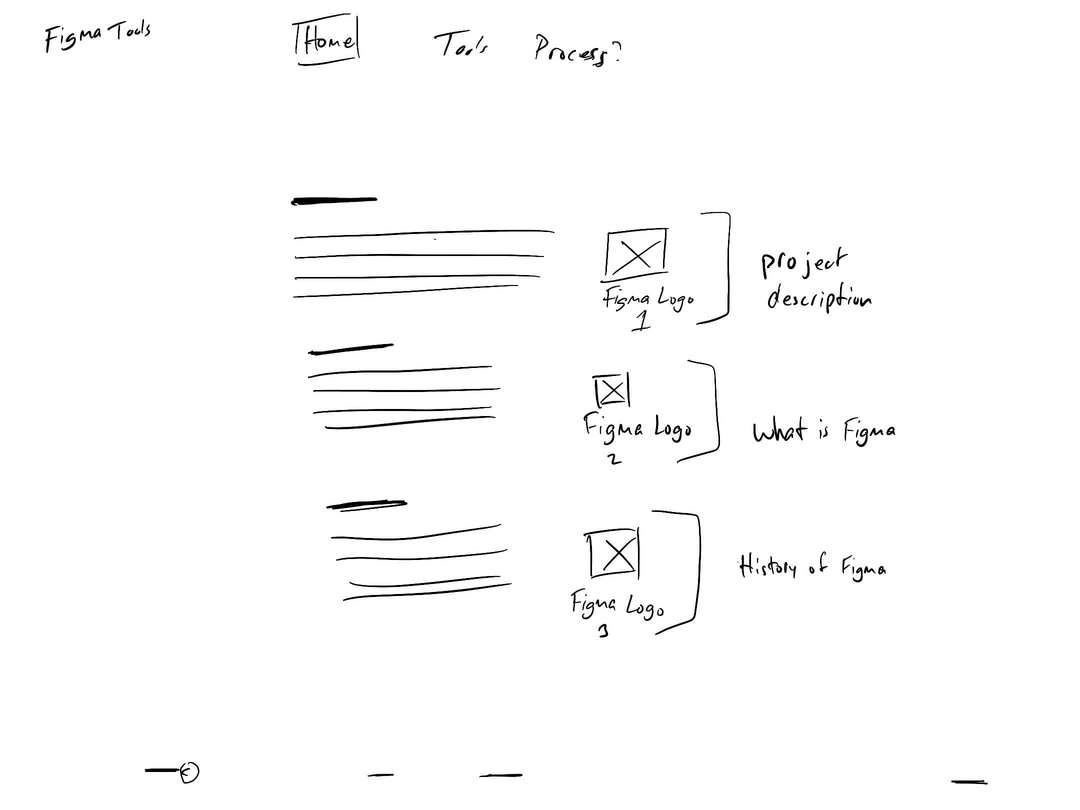 Figma Tools
Home
Tools
Process?
Figma Logo
1
project
description
Figma Logo
2
What is Figma
Figma Logo
3
History of Figma
©